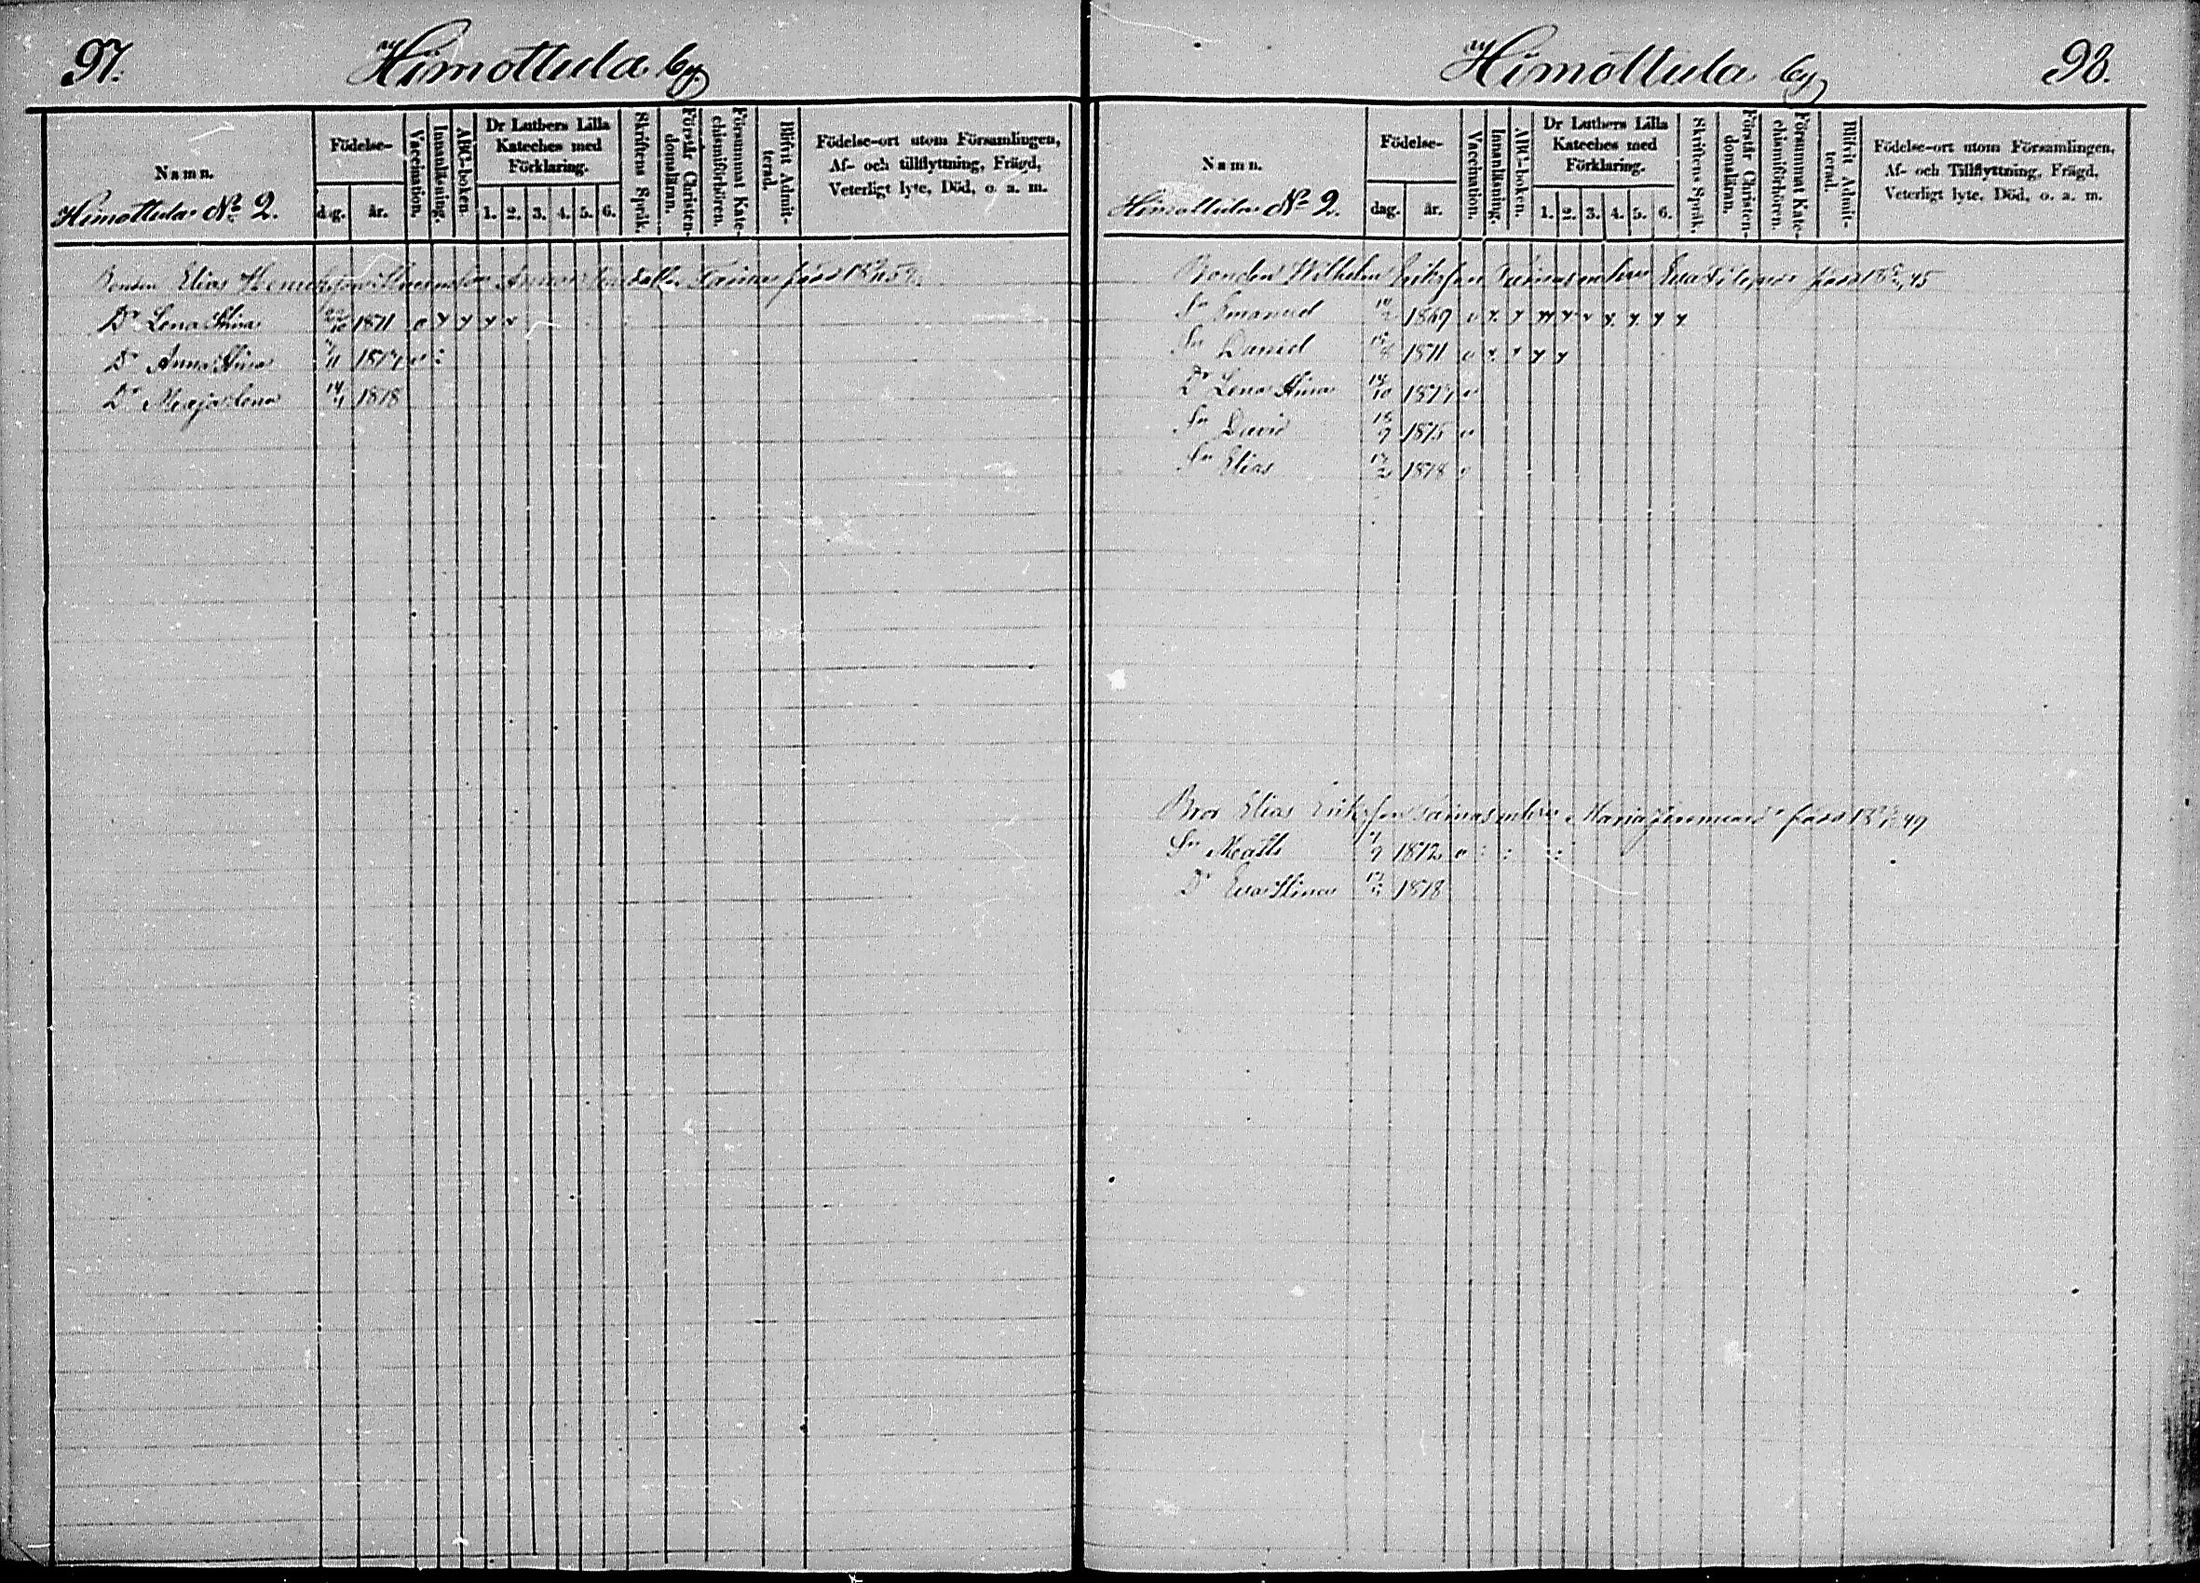 97. Himottula by.
Namn.
Himottula No 2.
Födelse-
dag. år.
Vaccination.
Innanläsning.
ABC-boken.
Dr Luthers Lilla
Kateches med
Förklaring.
1. 2. 3. 4. 5. 6.
Skriftens Språk.
Förstår Christen-
domsläran.
Försummat Kate-
chismiförhören.
Blifvit Admit-
terad.
Födelse-ort utom Församlingen,
Af- och tillflyttning, Frägd,
Veterligt lyte, Död, o. a. m.
Bonden Elias
Dr Lena Stina 1871
Dr Anna Stina 11 1874
Dr Maja Lena 14/1 1878
Himottula by 98.
Namn.
Himottula No 2.
Födelse-
dag. år.
Vaccination.
Innanläsning.
ABC-boken.
Dr Luthers Lilla
Kateches med
Förklaring.
1. 2. 3. 4. 5. 6.
Skriftens Språk.
Förstår Christen-
domsläran.
Försummat Kate-
chismiförhören.
Blifvit Admit-
terad.
Födelse-ort utom Församlingen,
Af- och Tillflyttning, Frägd,
Veterligt lyte, Död, o. a. m.
Bonden Wilhelm Eriksson Tainas Eva född 45
Sn Emanuel 1869
Sn Daniel 1871
Dr Lena Stina 10 1874
Sn David 9 1875
Sn Elias 1878
Bror Elias Eriksson Tainas Maria född 49
Sn Matts 9 1872
Dr Eva Stina 1878